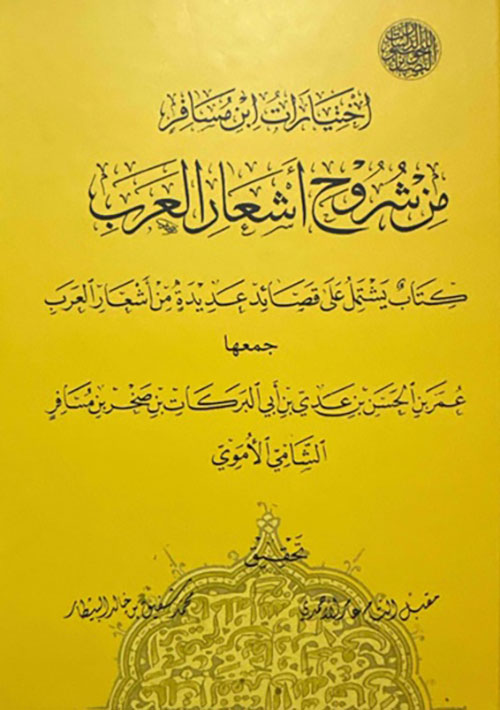 اختيارات ابن مسافر
من شروح أشعار العرب
كتاب يشتمل على قصائد عديدة من أشعار العرب
جمعها
عمر بن الحسن بن عدي بن أبي البركات بن صخر بن مسافر
الشامي الأموي
تحقيق
مقبل التام عامر الأحمدي
محمد شفيق بن خالد البيطار